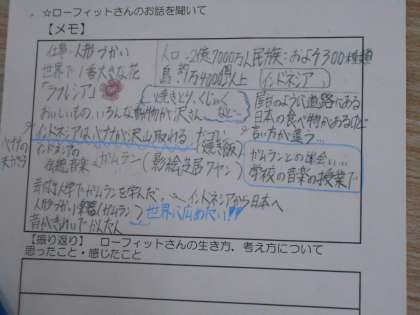 ☆ローフィットさんのお話を聞いて
【メモ】
仕事 人形つかい
世界で1番大きな花
「ラフレシア」
人口→2億7000万人 民族:およそ300種類
島 約1万4000島以上
インドネシア
焼きとり、くじゃく
おいしいもの、いろんな動物がたく沢さん など…
屋台のように道路にある
日本の食べ物かあるけど
言い方が違う…
インドネシアはバナナが沢山取れる ナシゴレン(焼き飯)
インドネシアの
伝統音楽 ガムラン (影絵芝居ワヤン)
ガムランとの出会い…
学校の音楽の授業で
大学でガムランを学んだ
インドネシアから日本へ
人形つかい 楽器(ガムラン) 世界へ広めたい!!
音がきれいでかんたん
【振り返り】 ローフィットさんの生き方、考え方について
思ったこと・感じたこと